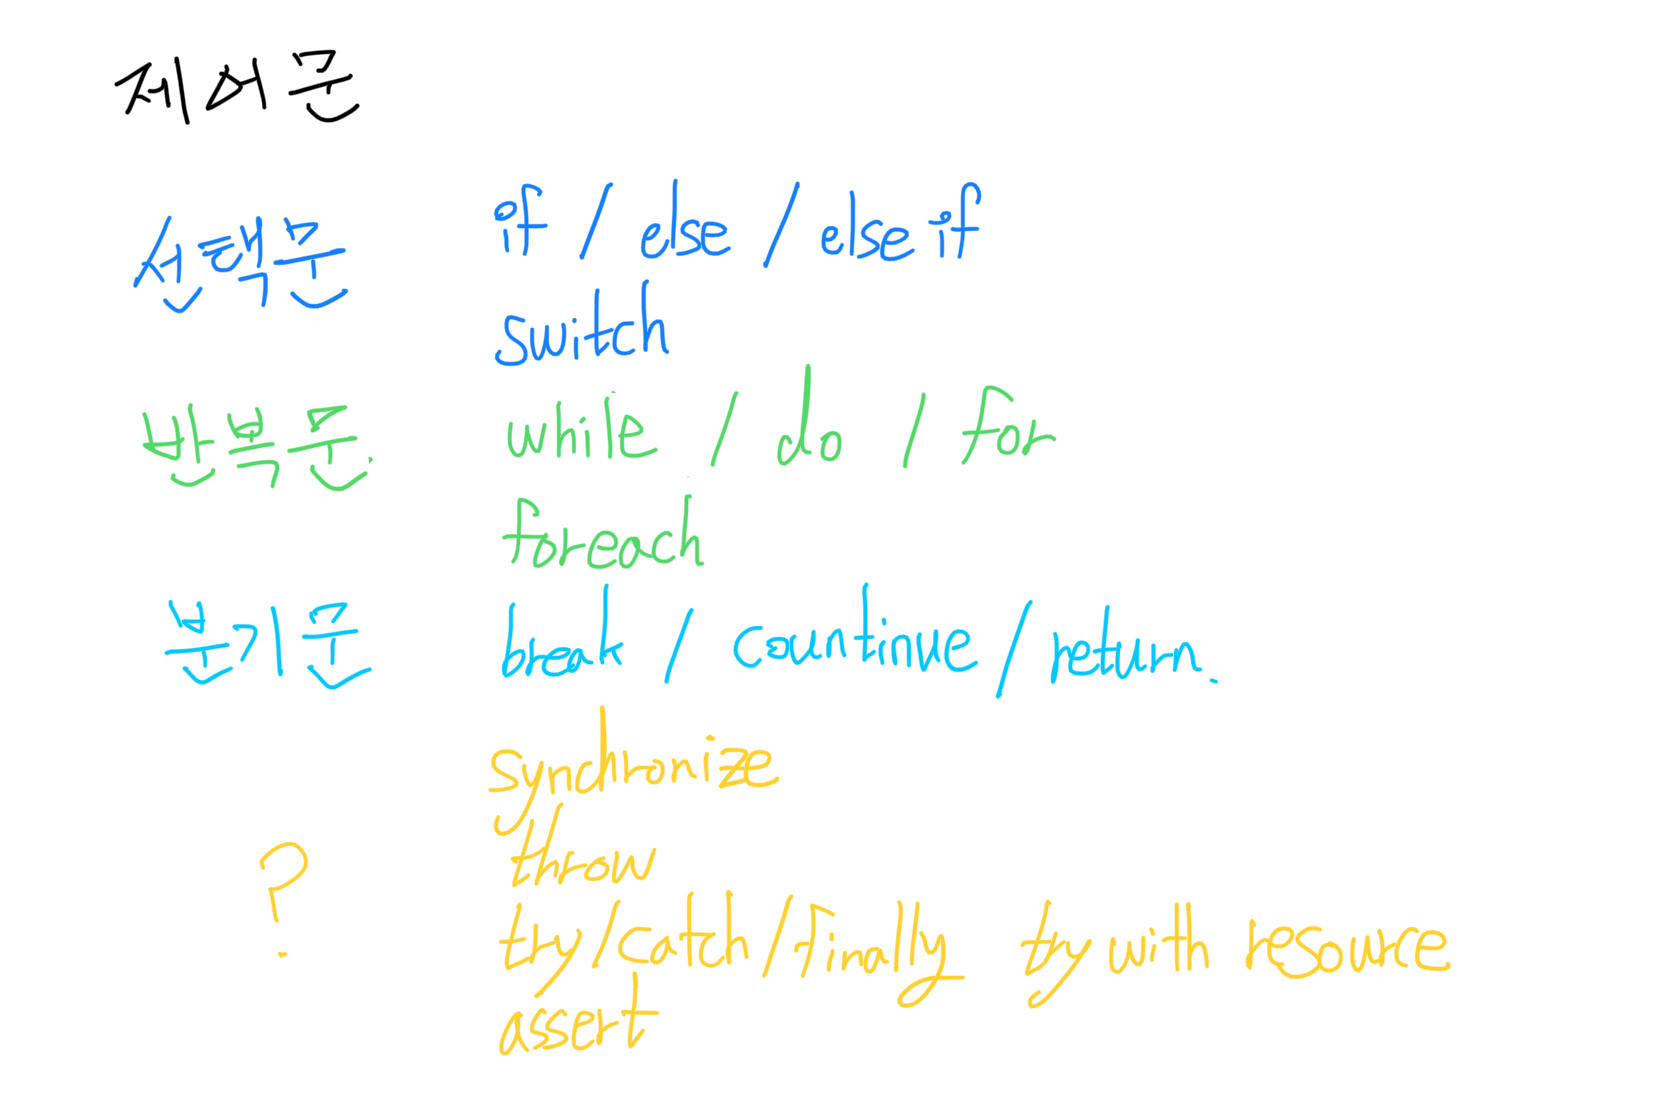 제어문
선택문 if / else / else if
switch
반복문. while / do / for
foreach
분기문 break / countinue / return.
synchronize
throw
?
try/catch/finally try with resource
assert